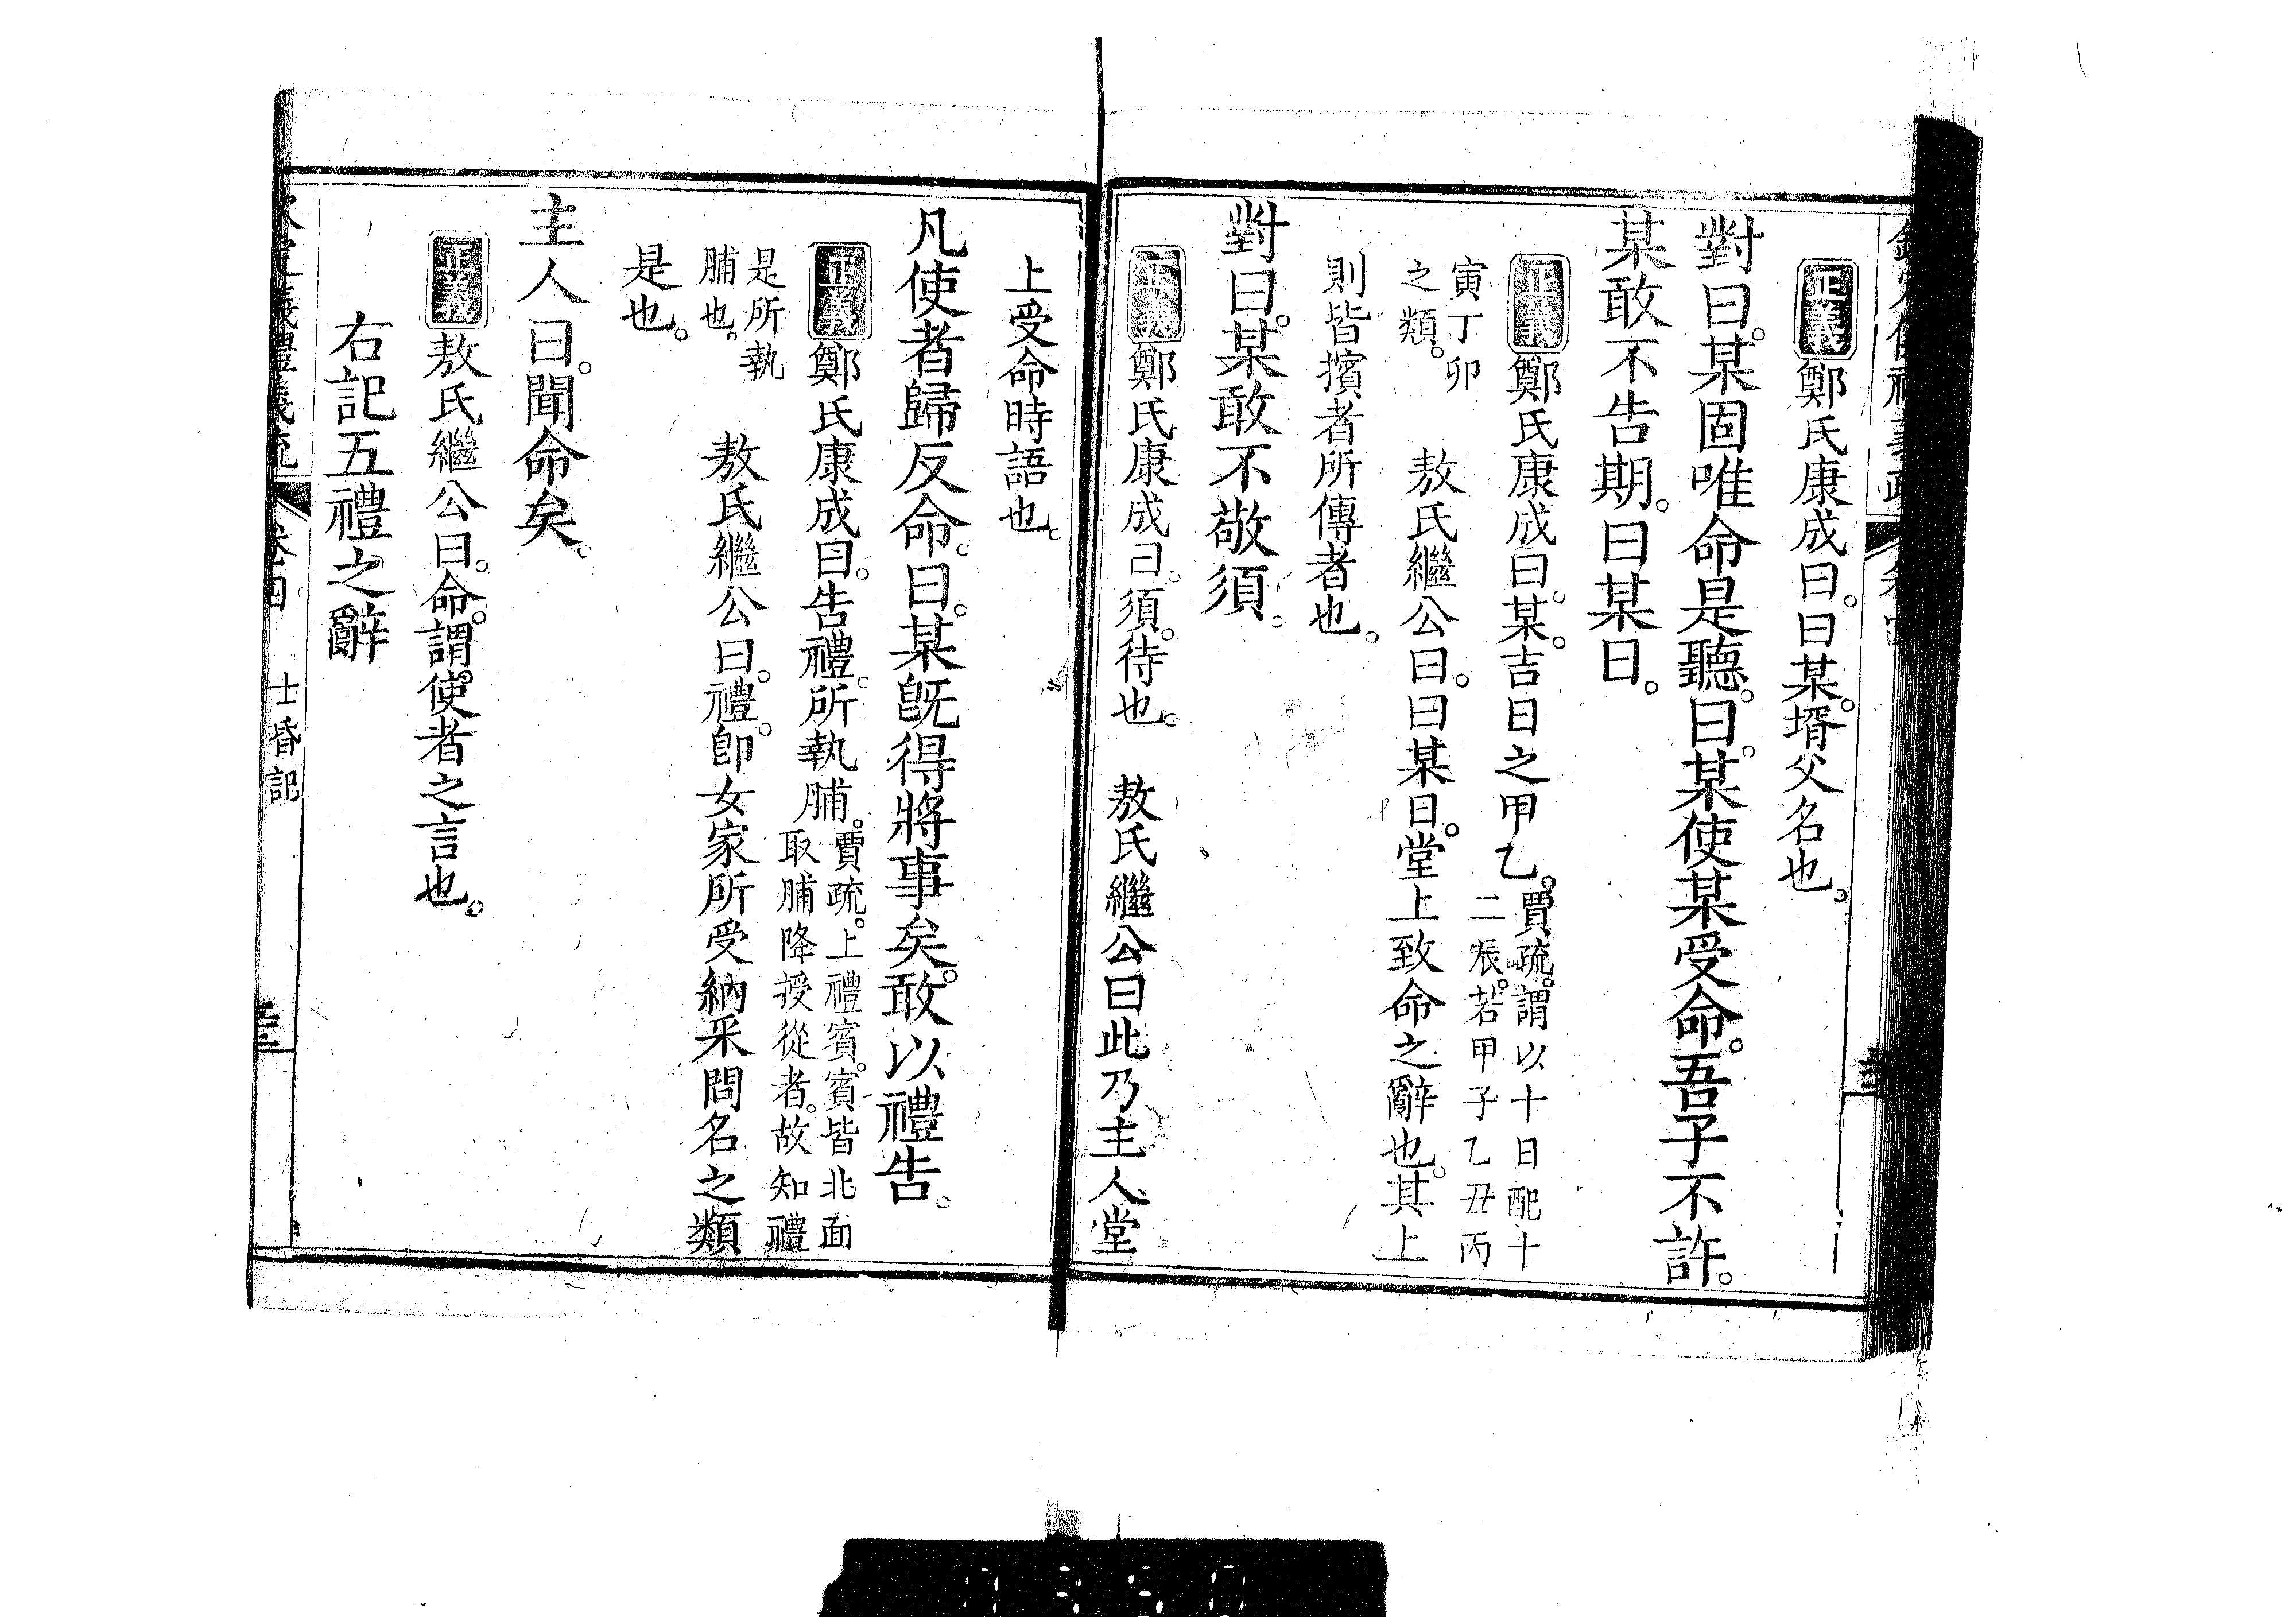 正義鄭氏康成曰。曰某。壻父名也。
對曰。某固唯命是聽。曰。某使某受命。吾子不許。
某敢不告期。曰某日。
正義鄭氏康成曰。某。吉日之甲乙。賈疏。謂以十日配十
二辰。若甲子乙丑丙
寅丁卯
之類。
敖氏繼公曰。曰某日。堂上致命之辭也。其上
則皆擯者所傳者也。
對曰。某敢不敬須。
正義鄭氏康成曰。須。待也。敖氏繼公曰此乃主人堂
上受命時語也。
凡使者歸反命。曰。某旣得將事矣。敢以禮告。
正義鄭氏康成曰。告禮。所執脯。賈疏。上禮賓。賓皆北面
取脯降授從者。故知禮
是所執
脯也。
敖氏繼公曰。禮。卽女家所受納采問名之類
是也。
主人曰。聞命矣。
正義敖氏繼公曰。命。謂使者之言也。
右記五禮之辭
卷四
士昏記